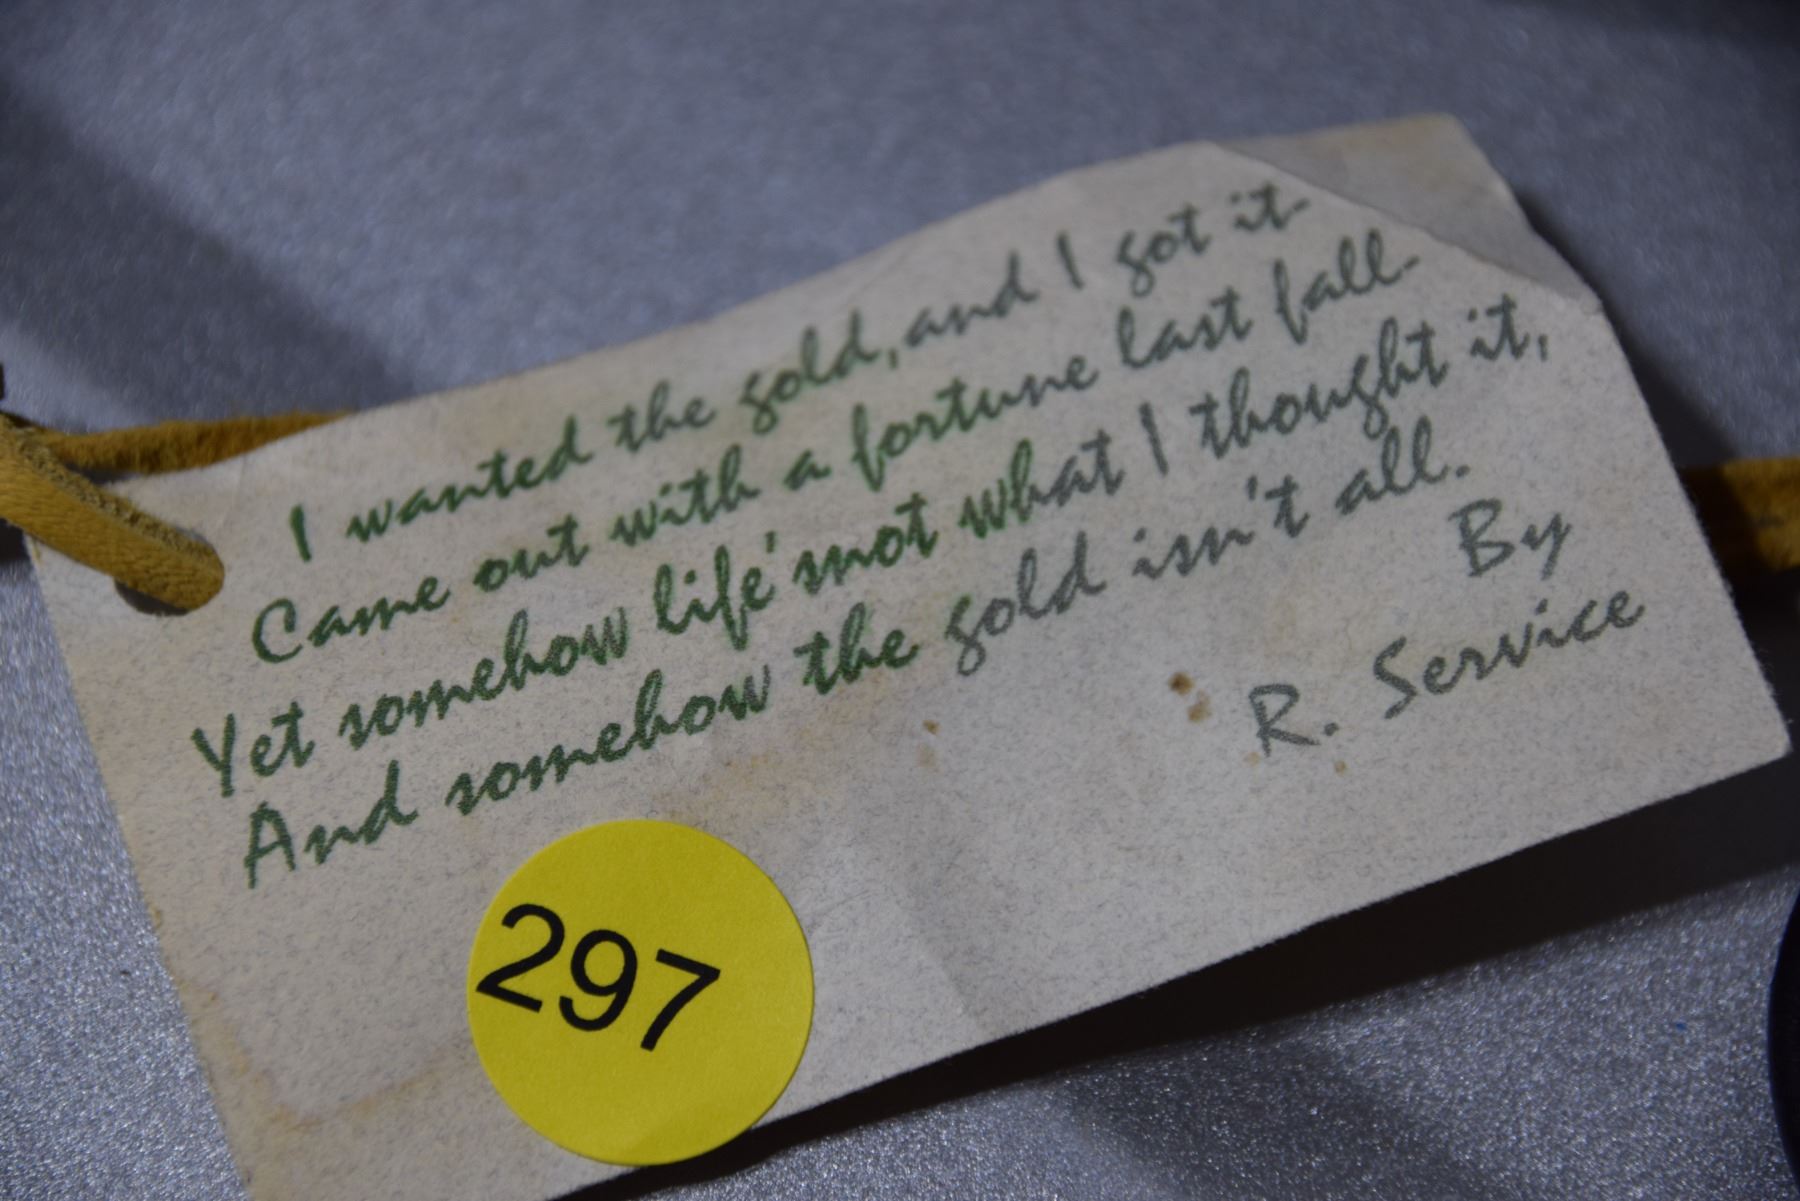 I wanted the gold, and I got it-
Came out with a fortune last fall-
Yet somehow life'snot what I thought it,
And somehow the gold isn't all.
By
R. Service
297